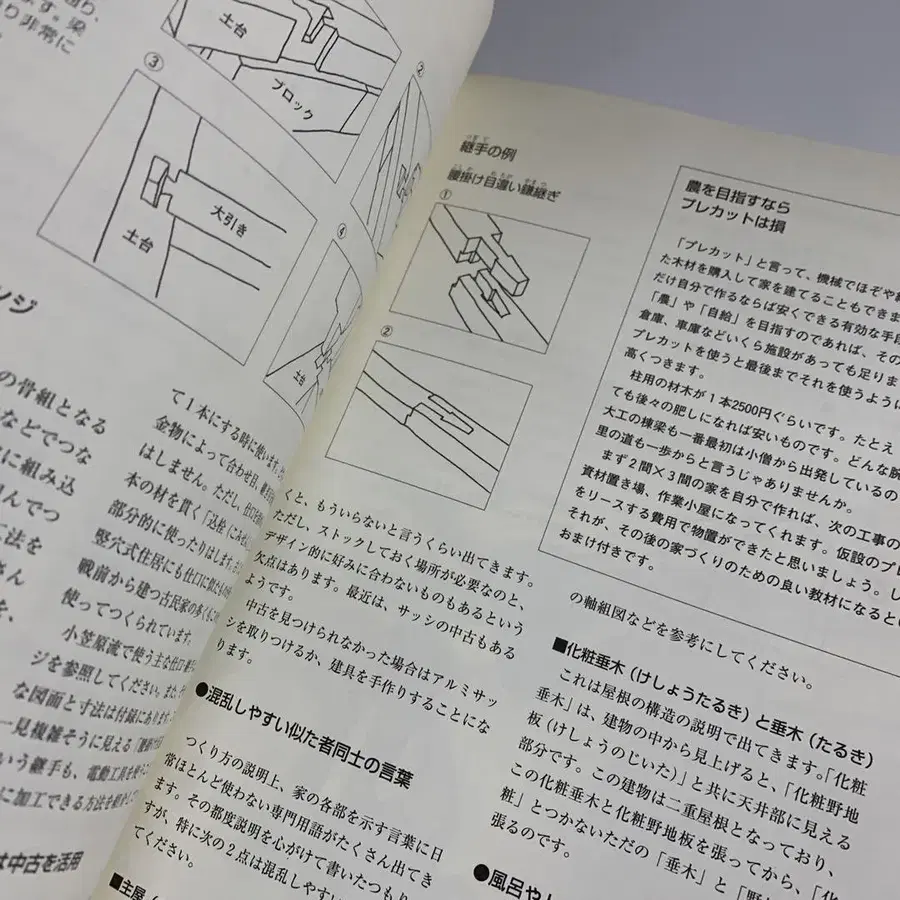 ります。梁
り非常に
土台
ブロック
③
②
大引き
土台
④
土台
ンジ
の骨組となる
などでつな
に組み込
んでつ
工法を
さん
を、
て1本にする時に使います。
金物によって合わせ目、
はしません。ただし、仕口
本の材を貫く「込栓」
部分的に使ったりはします。
竪穴式住居にも仕口に似た
戦前から建つ古民家の多くに
使ってつくられています。
小笠原流で使う主な仕口
ジを参照してください。また、
な図面と寸法は付録にあります。
一見複雑そうに見える「腰掛け
いう継手も、電動工具を使
に加工できる方法を紹介し
は中古を活用
つぎて
継手の例
こしか めちが かまつ
腰掛け目違い鎌継ぎ
①
②
くと、もういらないと言うくらい出てきます。
ただし、ストックしておく場所が必要なのと、
デザイン的に好みに合わないものもあるという
欠点はあります。最近は、サッシの中古もある
ようです。
中古を見つけられなかった場合はアルミサッ
シを取りつけるか、建具を手作りすることにな
ります。
●混乱しやすい似た者同士の言葉
つくり方の説明上、家の各部を示す言葉に日
常ほとんど使わない専門用語がたくさん出てき
ます。その都度説明を心がけて書いたつもり
すが、特に次の2点は混乱しやすい
てください。
■主屋（
農を目指すなら
プレカットは損
「プレカット」と言って、機械でほぞや
た木材を購入して家を建てることもできま
だけ自分で作るならば安くできる有効な手段
「農」や「自給」を目指すのであれば、その
倉庫、車庫などいくら施設があっても足りま
プレカットを使うと最後までそれを使うように
高くつきます。
柱用の材木が1本2500円ぐらいです。たとえ
ても後々の肥しになれば安いものです。どんな腕
大工の棟梁も一番最初は小僧から出発しているの
里の道も一歩からと言うじゃありませんか。
まず2間×3間の家を自分で作れば、次の工事の
資材置き場、作業小屋になってくれます。仮設のプレ
をリースする費用で物置ができたと思いましょう。し
それが、その後の家づくりのための良い教材になると
おまけ付きです。
の軸組図などを参考にしてください。
■化粧垂木（けしょうたるき）と垂木（たるき）
これは屋根の構造の説明で出てきます。「化粧
垂木」は、建物の中から見上げると、「化粧野地
板（けしょうのじいた）」と共に天井部に見える
部分です。この建物は二重屋根となっており、
この化粧垂木と化粧野地板を張ってから、「化
粧」とつかないただの「垂木」と「野
張るのです。
●風呂や